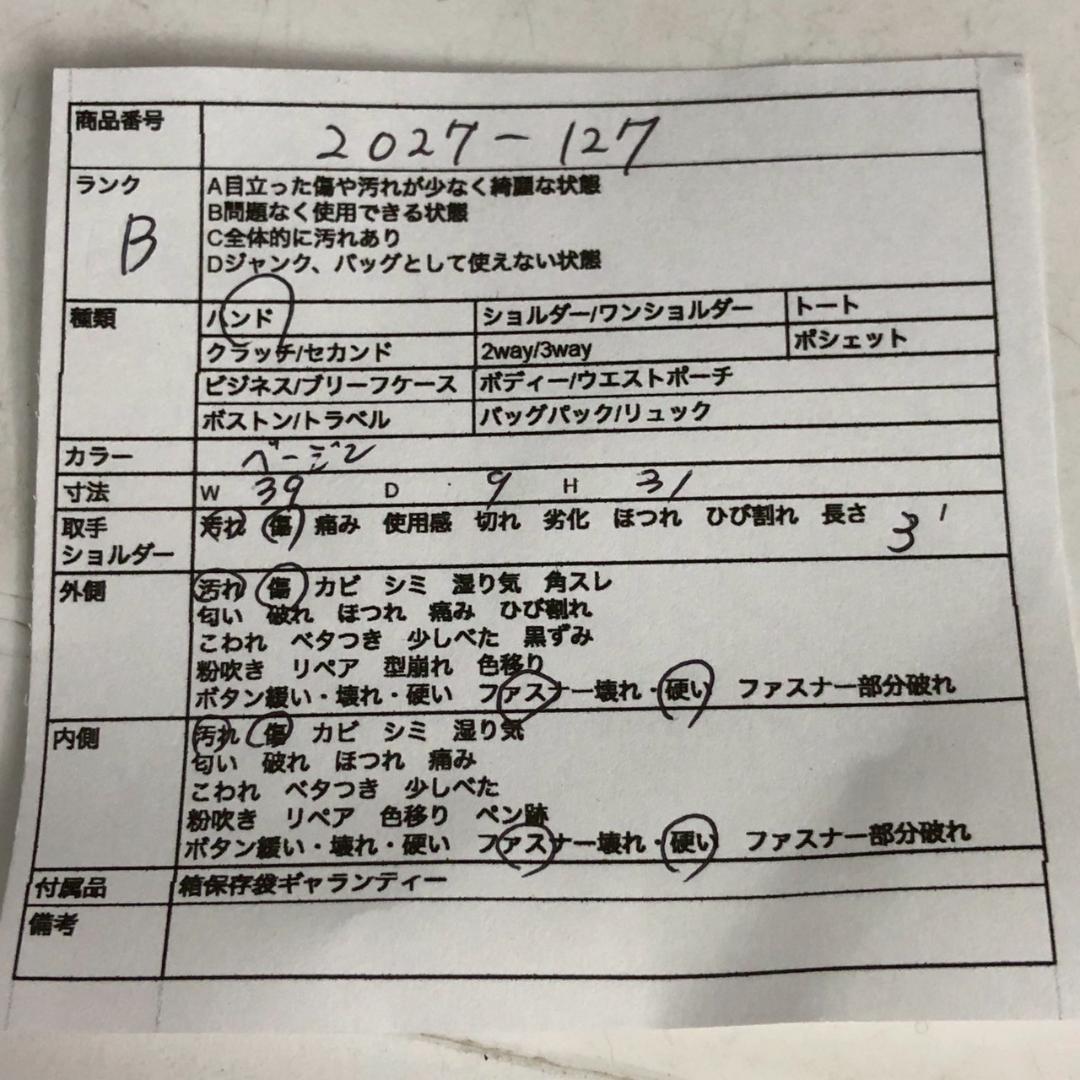 商品番号 2027-127
ランク B
A目立った傷や汚れが少なく綺麗な状態
B問題なく使用できる状態
C全体的に汚れあり
Dジャンク、バッグとして使えない状態
種類 ハンド ショルダー/ワンショルダー トート
クラッチ/セカンド 2way/3way ポシェット
ビジネス/ブリーフケース ボディー/ウエストポーチ
ボストン/トラベル バッグパック/リュック
カラー ベージュ
寸法 W 39 D 9 H 31
取手 汚れ 傷 痛み 使用感 切れ 劣化 ほつれ ひび割れ 長さ 31
ショルダー
外側 汚れ 傷 カビ シミ 湿り気 角スレ
匂い 破れ ほつれ 痛み ひび割れ
こわれ ベタつき 少しべた 黒ずみ
粉吹き リペア 型崩れ 色移り
ボタン緩い・壊れ・硬い ファスナー壊れ・硬い ファスナー部分破れ
内側 汚れ 傷 カビ シミ 湿り気
匂い 破れ ほつれ 痛み
こわれ ベタつき 少しべた
粉吹き リペア 色移り ペン跡
ボタン緩い・壊れ・硬い ファスナー壊れ・硬い ファスナー部分破れ
付属品 箱保存袋ギャランティー
備考